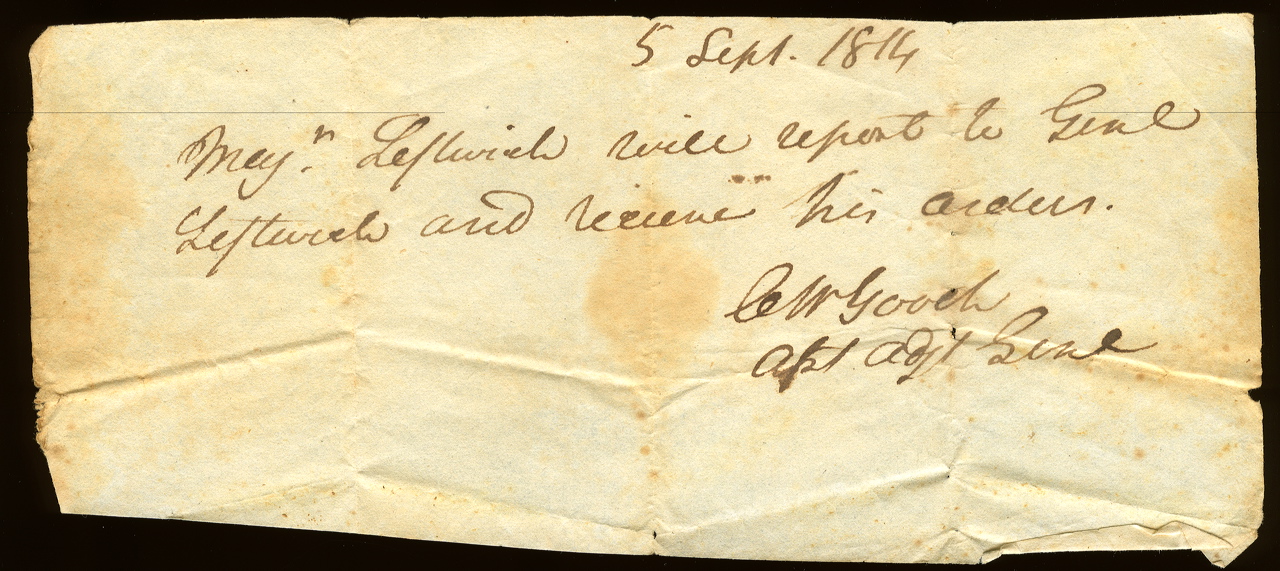 5 Sept. 1814
Majr. Leftwich will report to Genl
Leftwich and receive his orders.
C W Gooch
Asst Adjt Genl